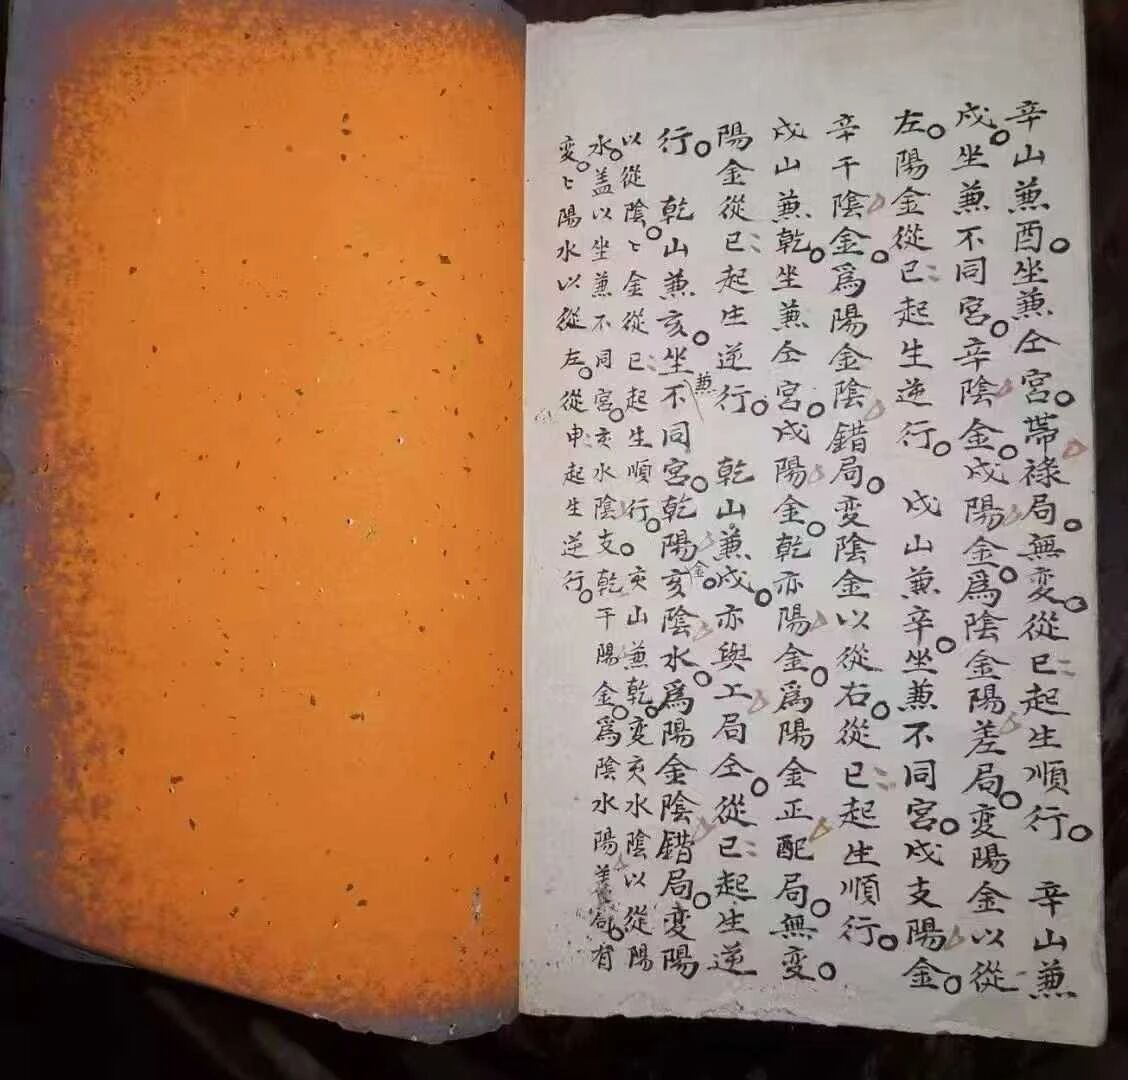 辛山兼酉。坐兼仝宮。帶祿局。無変。從巳起生順行。 辛山兼
戌。坐兼不同宮。辛陰金。戌陽金。爲陰金陽差局。変陽金以從
左。陽金從巳起生逆行。 戌山兼辛。坐兼不同宮。戌支陽金。
辛干陰金。爲陽金陰錯局。変陰金以從右。從巳起生順行。
戌山兼乾。坐兼仝宮。戌陽金。乾亦陽金。爲陽金正配局。無変。
陽金從巳起生逆行。 乾山兼戌。亦與工局仝。從巳起生逆
行。 乾山兼亥。坐兼不同宮。乾陽金。亥陰水。爲陽金陰錯局。変陽
以從陰。〻金從巳起生順行。亥山兼乾。変亥水陰以從陽
水。盖以坐兼不同宮。亥水陰支。乾干陽金。爲陰水陽差局。有
変。〻陽水以從左。從申起生逆行。